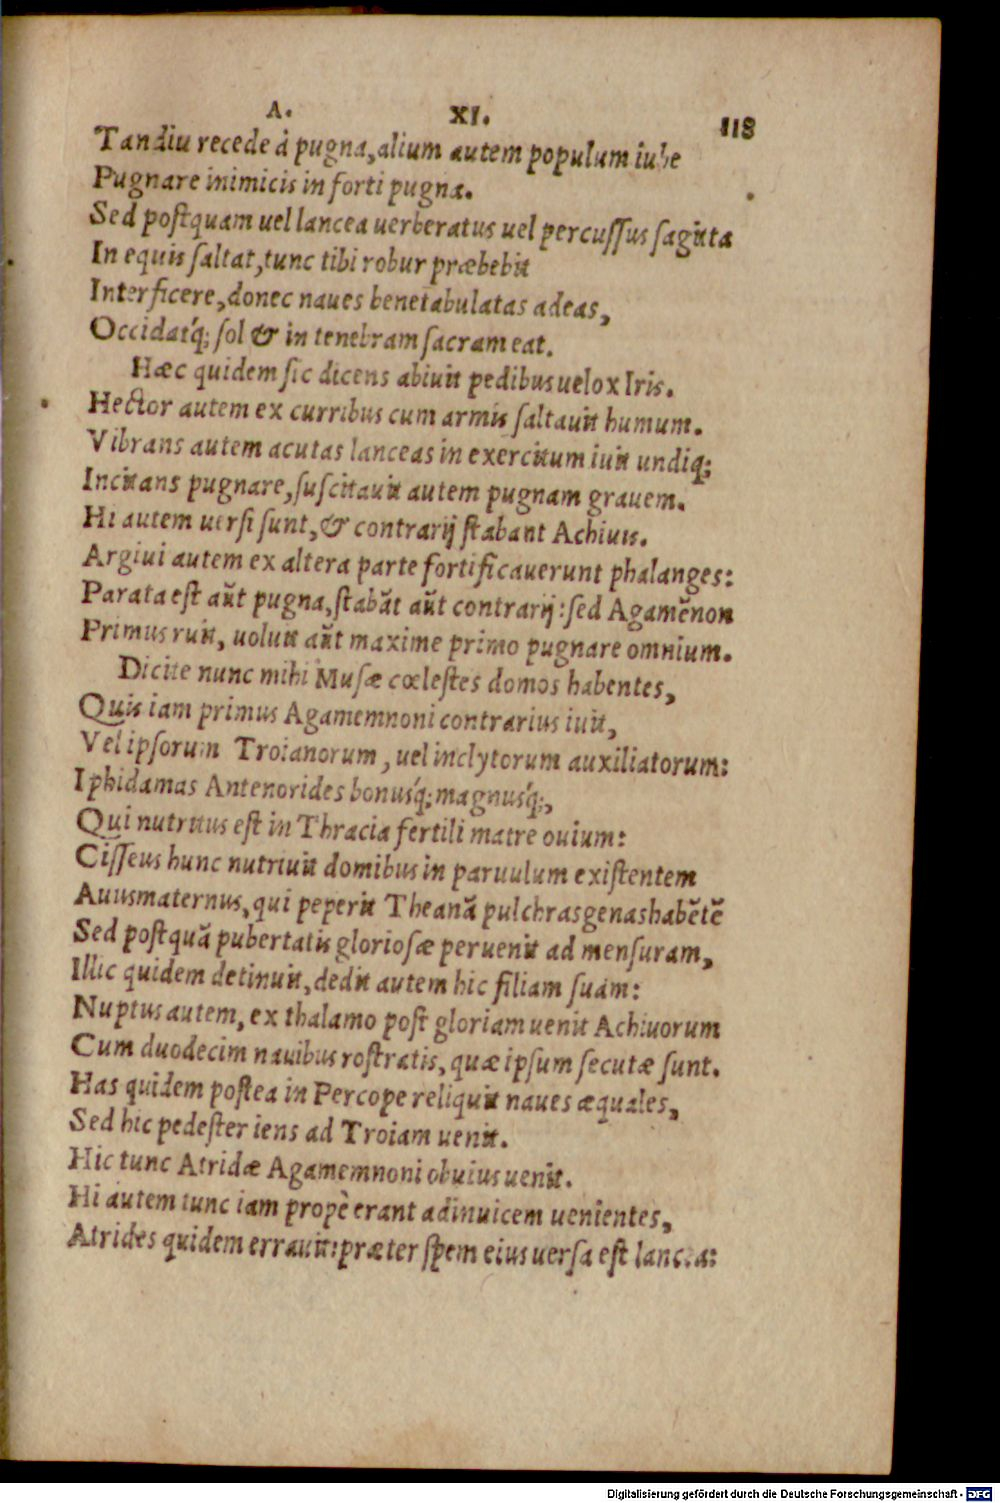 A. XI. 118
Tandiu recede à pugna, alium autem populum iube
Pugnare inimicis in forti pugna.
Sed postquam uel lancea uerberatus uel percussus sagitta
In equis saltat, tunc tibi robur præbebit
Interficere, donec naues benetabulatas adeas,
Occidatq́; sol & in tenebram sacram eat.
Hæc quidem sic dicens abiuit pedibus uelox Iris.
Hector autem ex curribus cum armis saltauit humum.
Vibrans autem acutas lanceas in exercitum iuit undiq;
Incitans pugnare, suscitauit autem pugnam grauem.
Hi autem uersi sunt, & contrarij stabant Achiuis.
Argiui autem ex altera parte fortificauerunt phalanges:
Parata est aũt pugna, stabãt aũt contrarij: sed Agamẽnon
Primus ruit, uoluit aũt maxime primo pugnare omnium.
Dicite nunc mihi Musæ cœlestes domos habentes,
Quis iam primus Agamemnoni contrarius iuit,
Vel ipsorum Troianorum, uel inclytorum auxiliatorum:
Iphidamas Antenorides bonusq́; magnusq́;,
Qui nutritus est in Thracia fertili matre ouium:
Cisseus hunc nutriuit domibus in paruulum existentem
Auusmaternus, qui peperit Theanã pulchrasgenashabẽtẽ
Sed postquã pubertatis gloriosæ peruenit ad mensuram,
Illic quidem detinuit, dedit autem hic filiam suam:
Nuptus autem, ex thalamo post gloriam uenit Achiuorum
Cum duodecim nauibus rostratis, quæ ipsum secutæ sunt.
Has quidem postea in Percope reliquit naues æquales,
Sed hic pedester iens ad Troiam uenit.
Hic tunc Atridæ Agamemnoni obuius uenit.
Hi autem tunc iam propè erant adinuicem uenientes,
Atrides quidem errauit: præter spem eius uersa est lancea:
Digitalisierung gefördert durch die Deutsche Forschungsgemeinschaft - DFG